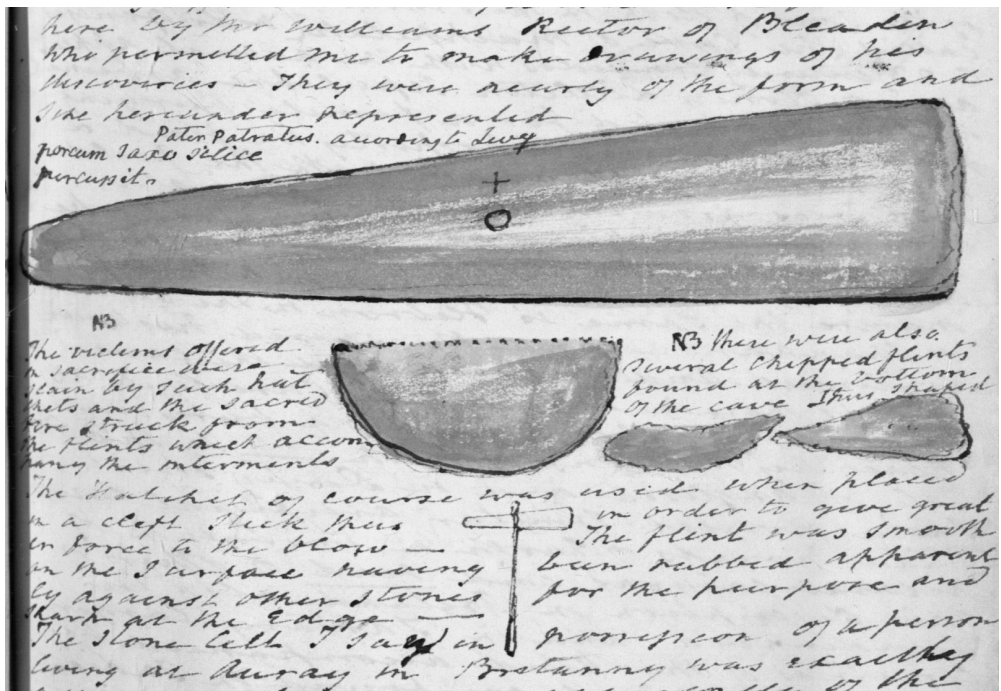 here by Mr Williams Rector of Bleadin
who permitted me to make drawings of his
discoveries - They were nearly of the form and
size hereunder Represented
Pater Patratus. according to Levy
porcum Saxo silice
percussit.
NB
The victims offered
in sacrifice were
slain by such hat
chets and the sacred
fire struck from
the flints which accom
pany the interments
NB there were also
several chipped flints
found at the bottom
of the cave Thus shaped
The Hatchet of course was used when placed
in a cleft stick thus in order to give great
er force to the blow — The flint was smooth
on the Surface having been rubbed apparent
ly against other stones for the purpose and
sharp at the Edge —
The Stone Celt I saw in possession of a person
living at Auray in Brittanny was exactly
of the